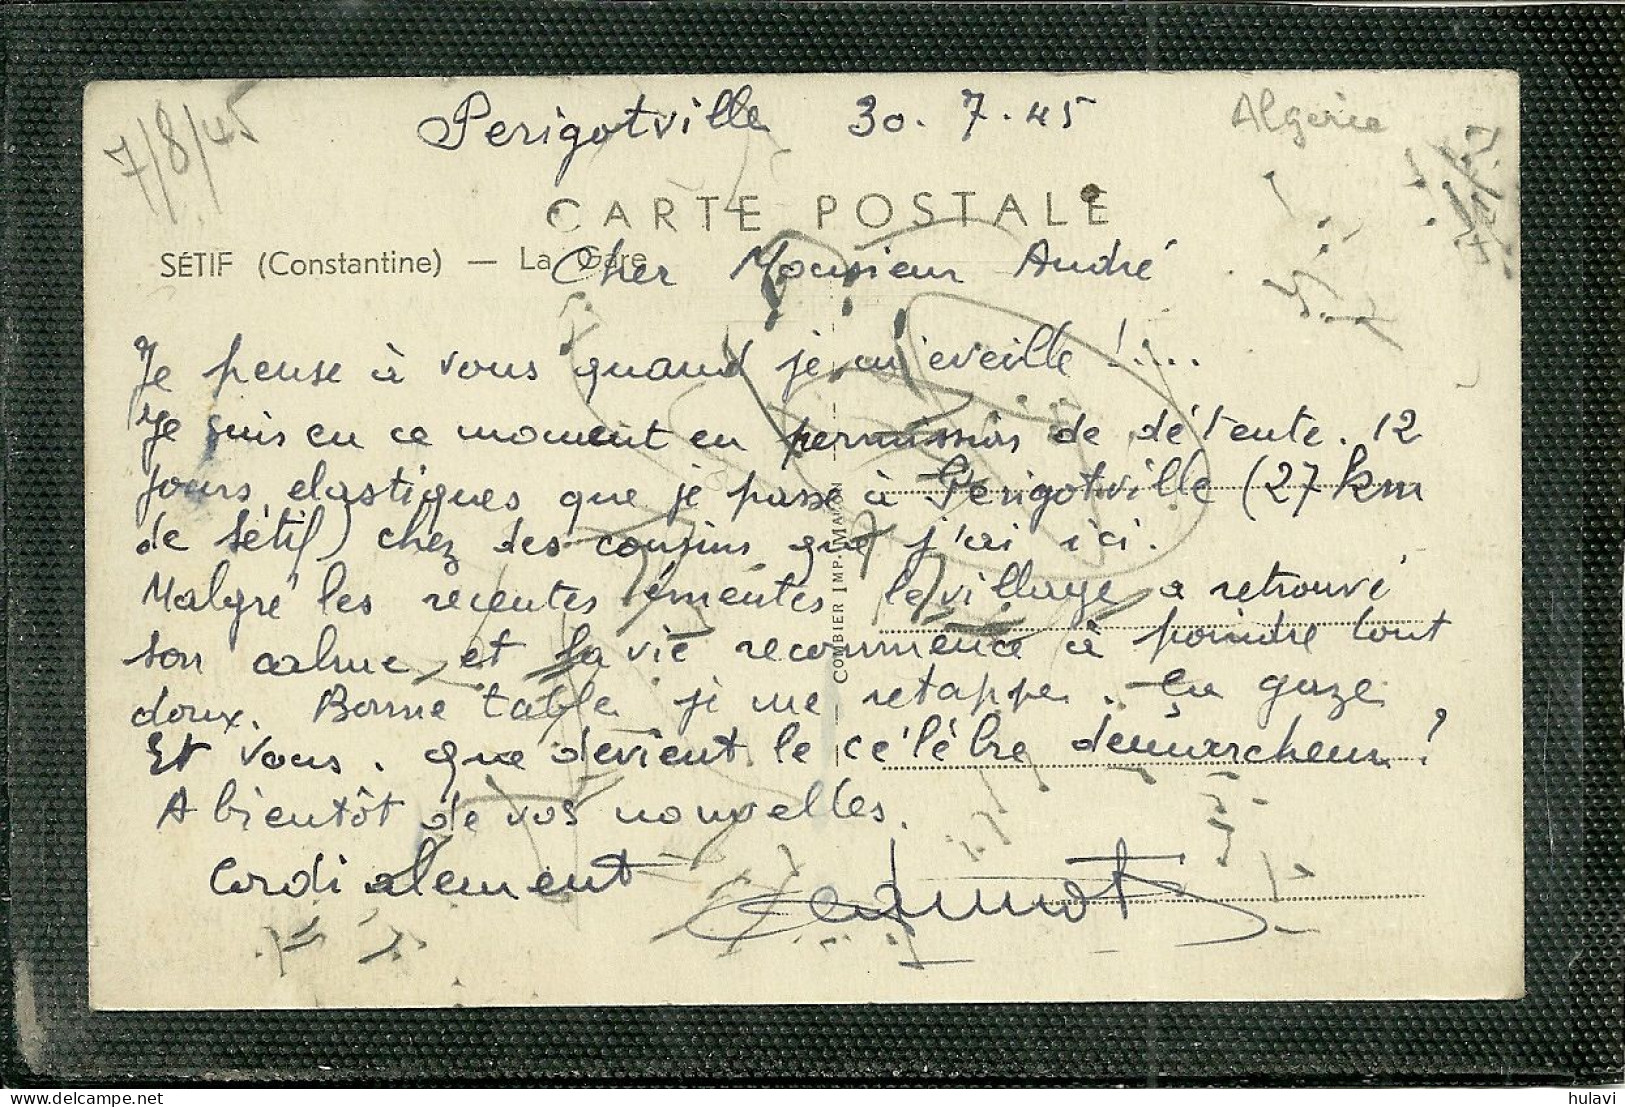 7/8/45
Perigotville 30.7.45
Algérie
CARTE POSTALE
SÉTIF (Constantine) — La Gare
Cher Monsieur André
Je pense à vous quand je m'eveille !....
Je suis en ce moment en permission de détente. 12
jours elastiques que je passe à Perigotville (27 km
de Sétif) chez des cousins que j'ai ici.
Malgré les récentes émeutes le village a retrouvé
son calme et la vie recommence à poindre tout
doux. Bonne table je me retappe. Ça gaze
Et vous, que devient le célèbre démarcheur ?
A bientôt de vos nouvelles.
Cordialement
COMBIER IMP. MACON
hulavi